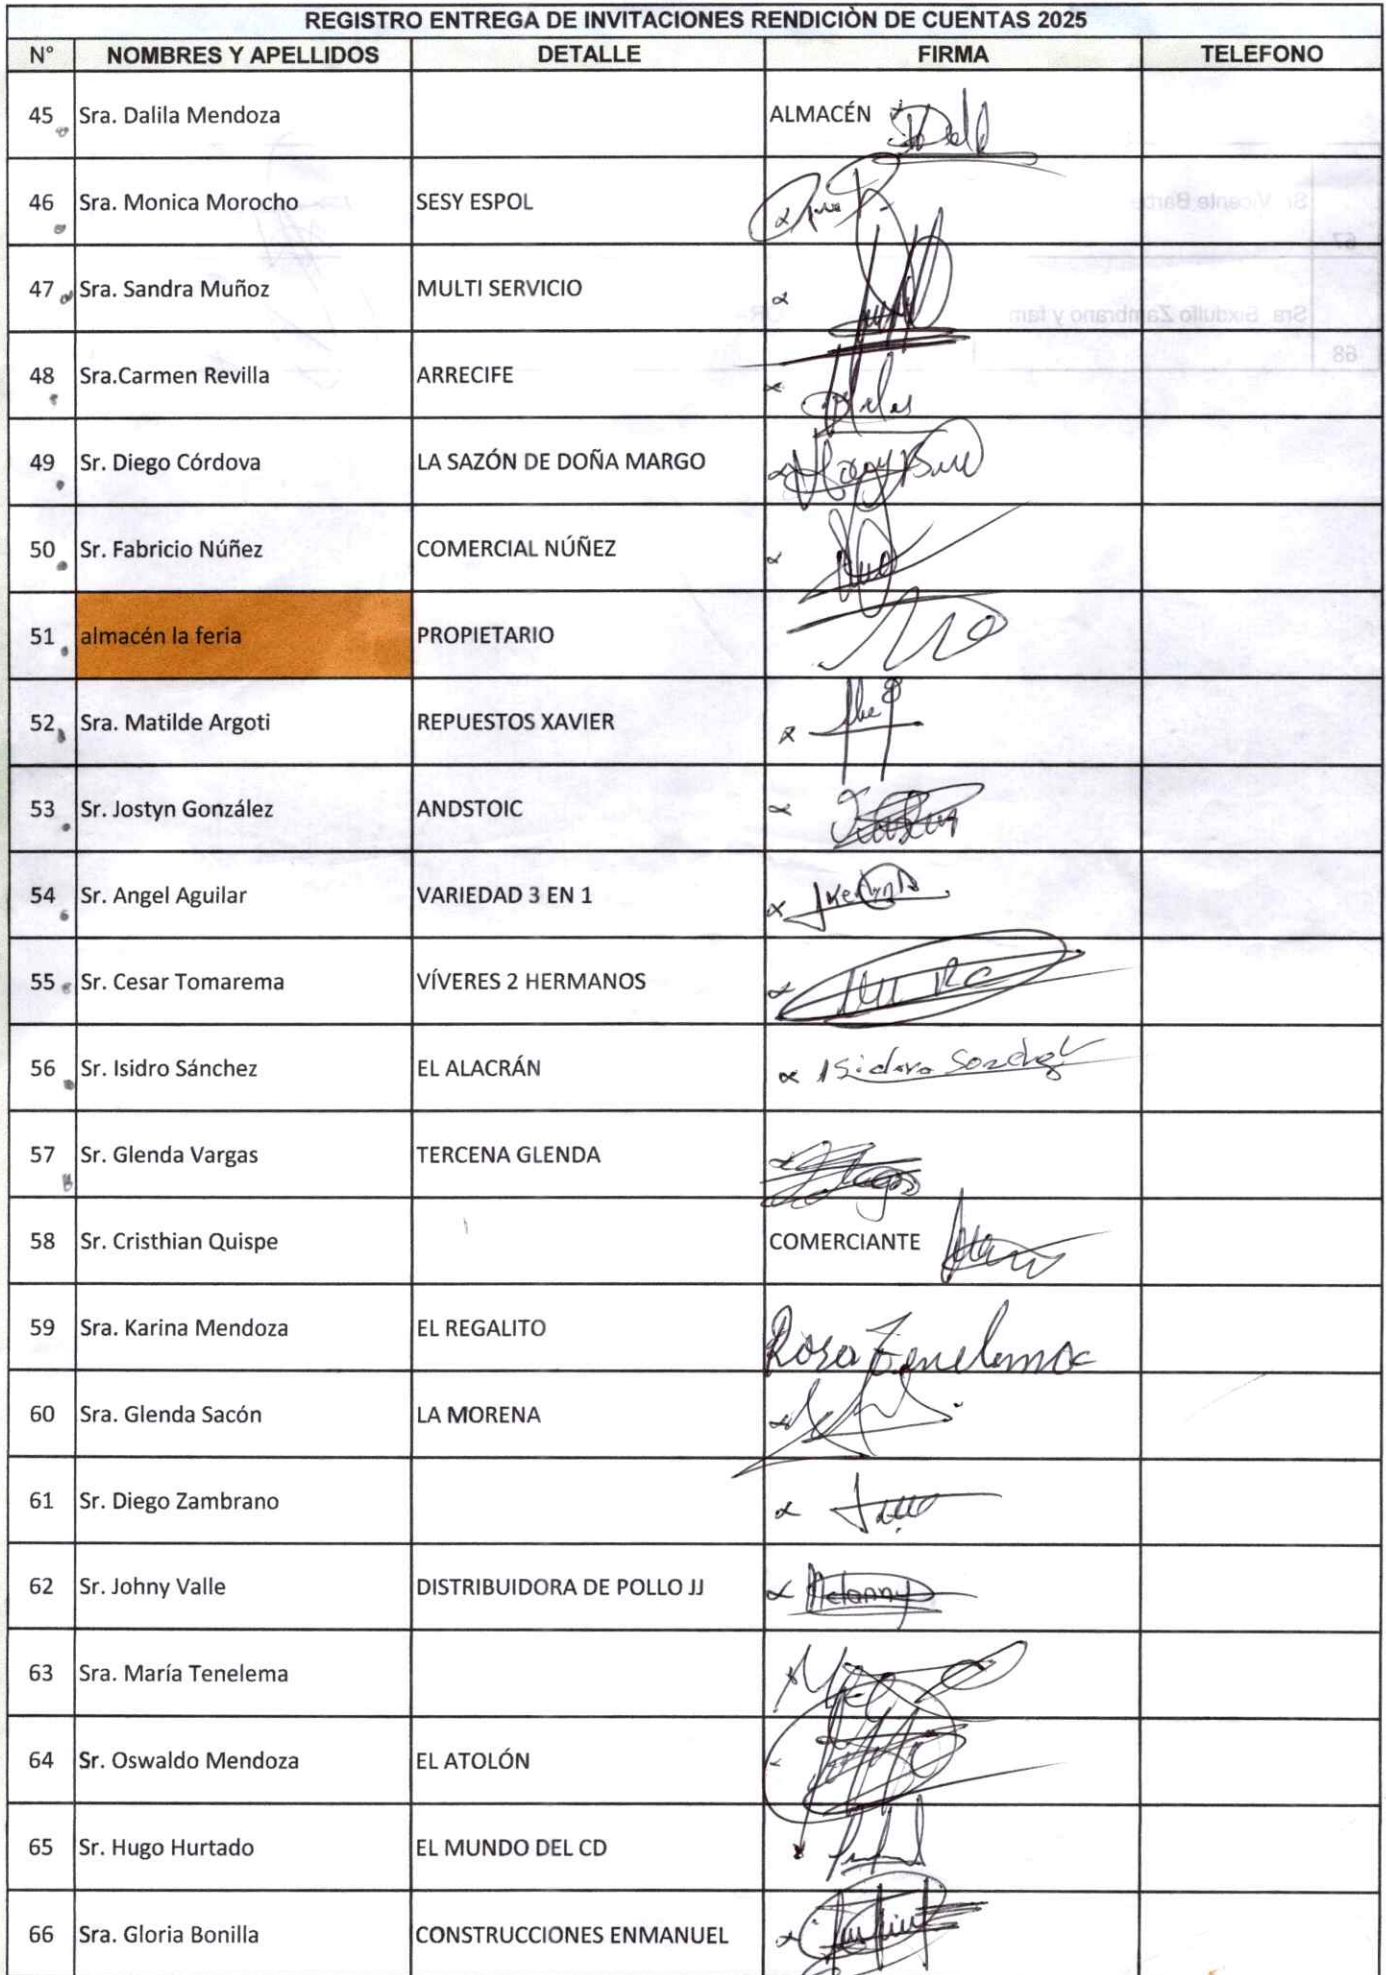 REGISTRO ENTREGA DE INVITACIONES RENDICIÒN DE CUENTAS 2025
N° NOMBRES Y APELLIDOS DETALLE FIRMA TELEFONO
45 Sra. Dalila Mendoza ALMACÉN
46 Sra. Monica Morocho SESY ESPOL
47 Sra. Sandra Muñoz MULTI SERVICIO
48 Sra.Carmen Revilla ARRECIFE
49 Sr. Diego Córdova LA SAZÓN DE DOÑA MARGO
50 Sr. Fabricio Núñez COMERCIAL NÚÑEZ
51 almacén la feria PROPIETARIO
52 Sra. Matilde Argoti REPUESTOS XAVIER
53 Sr. Jostyn González ANDSTOIC
54 Sr. Angel Aguilar VARIEDAD 3 EN 1
55 Sr. Cesar Tomarema VÍVERES 2 HERMANOS
56 Sr. Isidro Sánchez EL ALACRÁN
57 Sr. Glenda Vargas TERCENA GLENDA
58 Sr. Cristhian Quispe COMERCIANTE
59 Sra. Karina Mendoza EL REGALITO Rosa Tenelema
60 Sra. Glenda Sacón LA MORENA
61 Sr. Diego Zambrano
62 Sr. Johny Valle DISTRIBUIDORA DE POLLO JJ Melanny
63 Sra. María Tenelema
64 Sr. Oswaldo Mendoza EL ATOLÓN
65 Sr. Hugo Hurtado EL MUNDO DEL CD
66 Sra. Gloria Bonilla CONSTRUCCIONES ENMANUEL